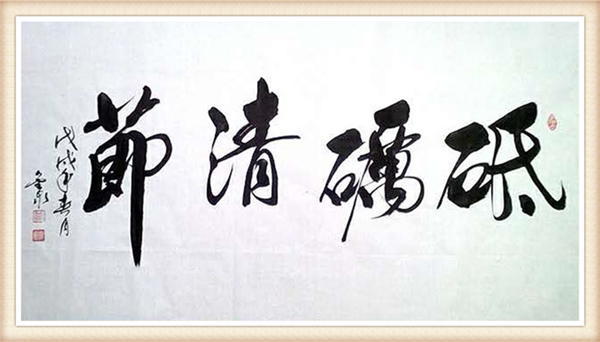 砥礪清節
戊戌年春月